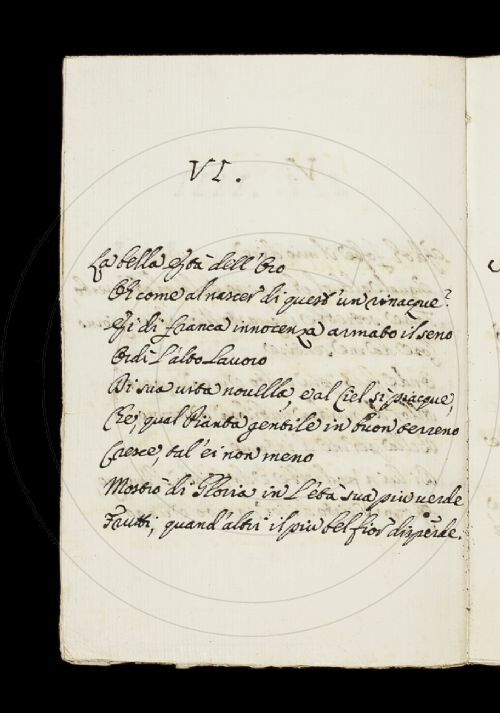 VI.
La bella Età dell'Oro
Oh come al nascer di quest'un rinacque?
Ei di franca innocenza armato il seno
Ordì l'alto Lavoro
Di sua vita novella, e al Ciel sì piacque,
Che, qual Pianta gentile in buon terreno
Cresce, tal'ei non meno
Mostrò di Gloria in l'età sua più verde
Frutti, quand'altri il più bel fior disperde.